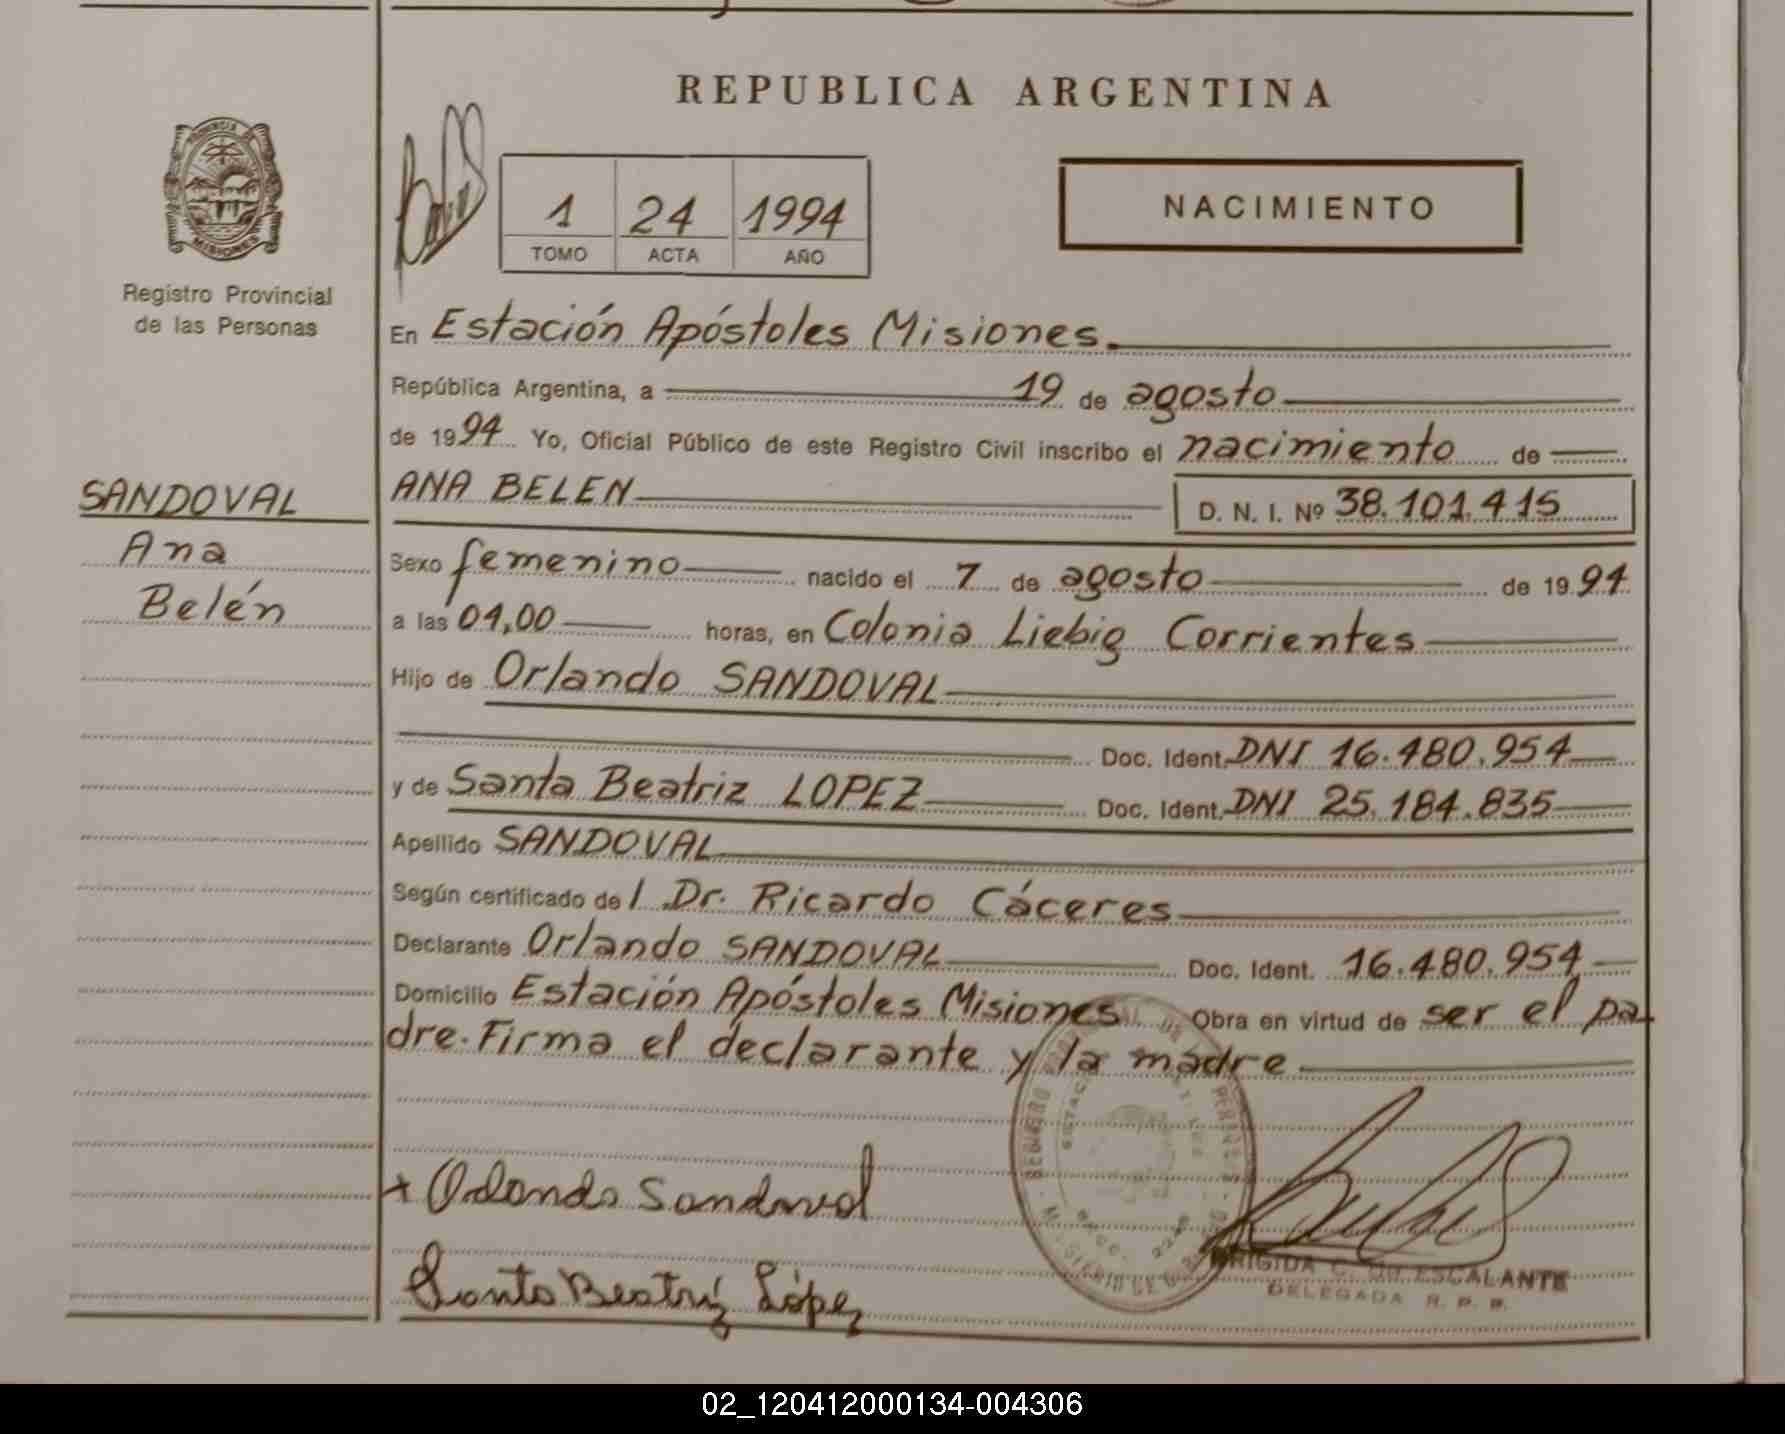 REPUBLICA ARGENTINA
PROVINCIA DE
MISIONES
1 24 1994
TOMO ACTA AÑO
NACIMIENTO
Registro Provincial
de las Personas
En Estación Apóstoles Misiones.
República Argentina, a 19 de agosto
de 1994 Yo, Oficial Público de este Registro Civil inscribo el nacimiento de
SANDOVAL
Ana
Belén
ANA BELEN D. N. I. Nº 38.101.415
Sexo femenino nacido el 7 de agosto de 1994
a las 01,00 horas, en Colonia Liebig Corrientes
Hijo de Orlando SANDOVAL
Doc. Ident. DNI 16.480.954
y de Santa Beatriz LOPEZ Doc. Ident. DNI 25.184.835
Apellido SANDOVAL
Según certificado del Dr. Ricardo Cáceres
Declarante Orlando SANDOVAL Doc. Ident. 16.480.954
Domicilio Estación Apóstoles Misiones Obra en virtud de ser el pa
dre. Firma el declarante y la madre
+ Orlando Sandoval
Santa Beatriz López
BRIGIDA C. DE ESCALANTE
DELEGADA R. P. P.
02_120412000134-004306